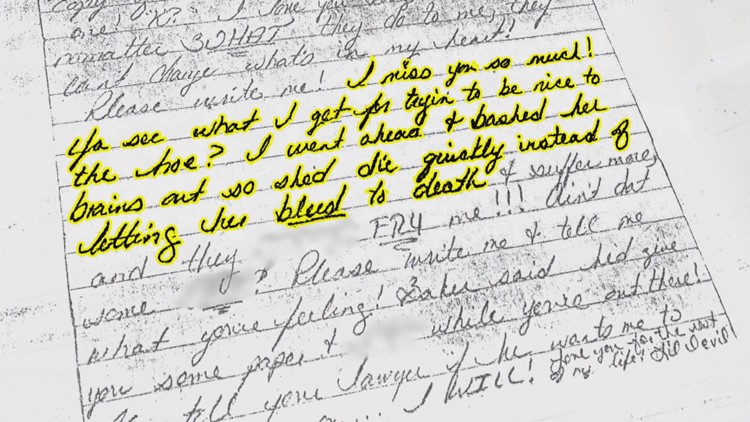 one! K? I love you
nomatter WHAT they do to me, they
can't change what's in my heart!
Please write me! I miss you so much!
Ya see what I get for tryin to be nice to
the hoe? I went ahead & bashed her
brains out so shed die quistly instead of
letting her bleed to death & suffer more,
and they FRY me!!! Ain't dat
some ? Please write me & tell me
what you're feeling! said he'd give
you some paper & while you're out there!
tell your lawyer if he wants me to
I WILL! Love you for the rest
of my life! Lil Devil